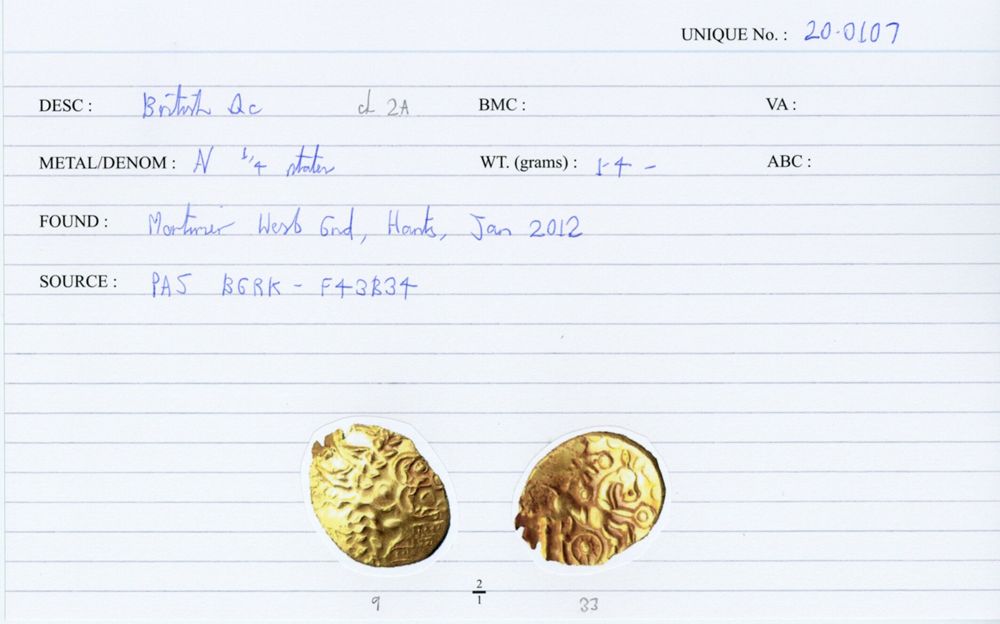 UNIQUE No. : 20·0107
DESC : British Qc cl 2A BMC : VA :
METAL/DENOM : N 1/4 stater WT. (grams) : 1·4 - ABC :
FOUND : Mortimer West End, Hants, Jan 2012
SOURCE : PAS BERK - F43B34
2
9 1 33